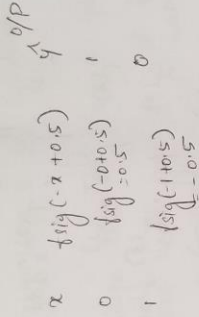 x fsig(-x+0.5) y O/P
0 fsig(-0+0.5) 1
= 0.5
1 fsig(-1+0.5) 0
= -0.5